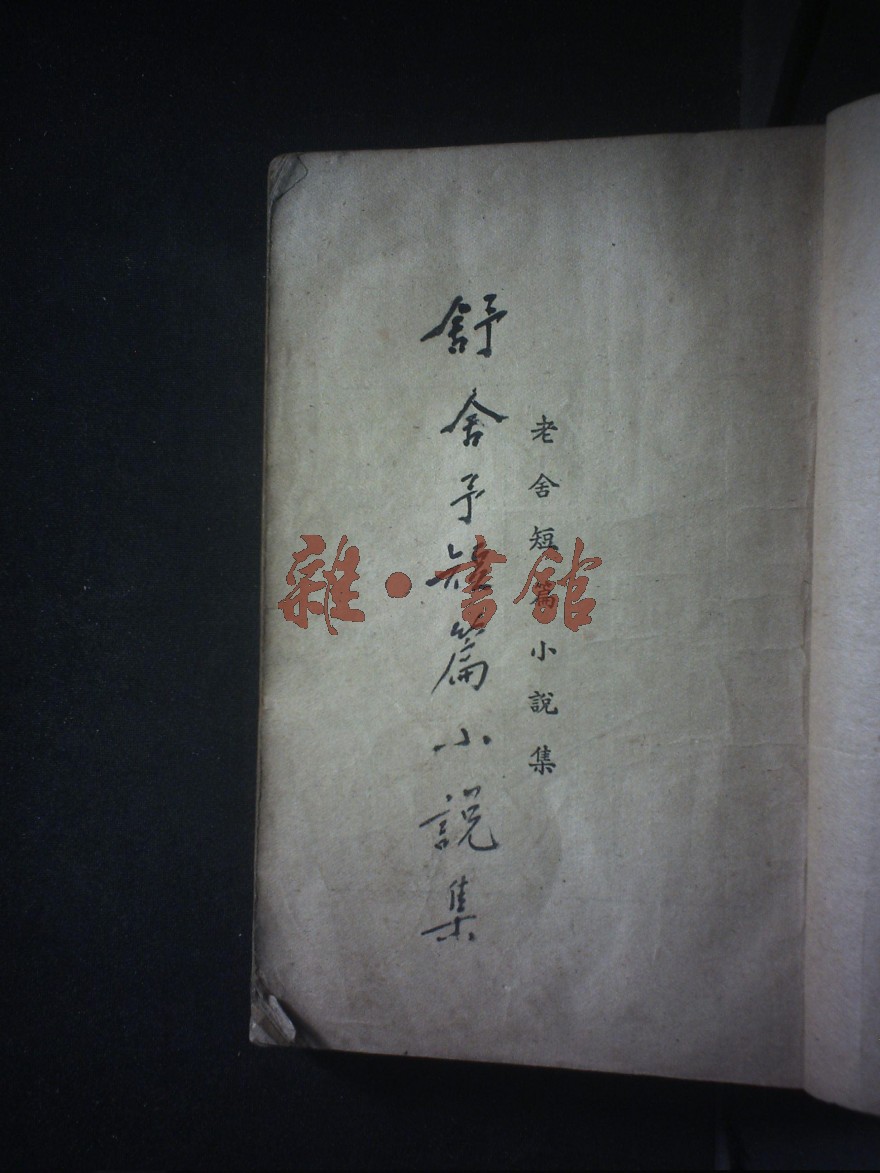 老舍短篇小說集
舒舍予短篇小說集
雜·書館